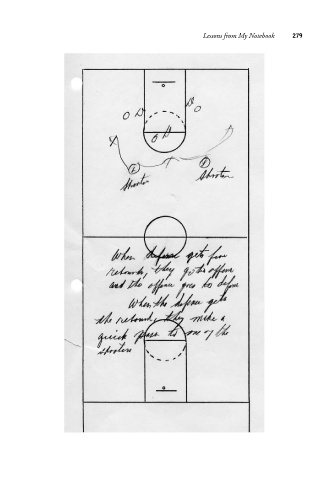 Lessons from My Notebook 279
O D D O
X O D
1 1
Shooter Shooter
When defense gets five
rebounds, they go to offense
and the offense goes to defense
When the defense gets
the rebound, they make a
quick pass to one of the
shooters